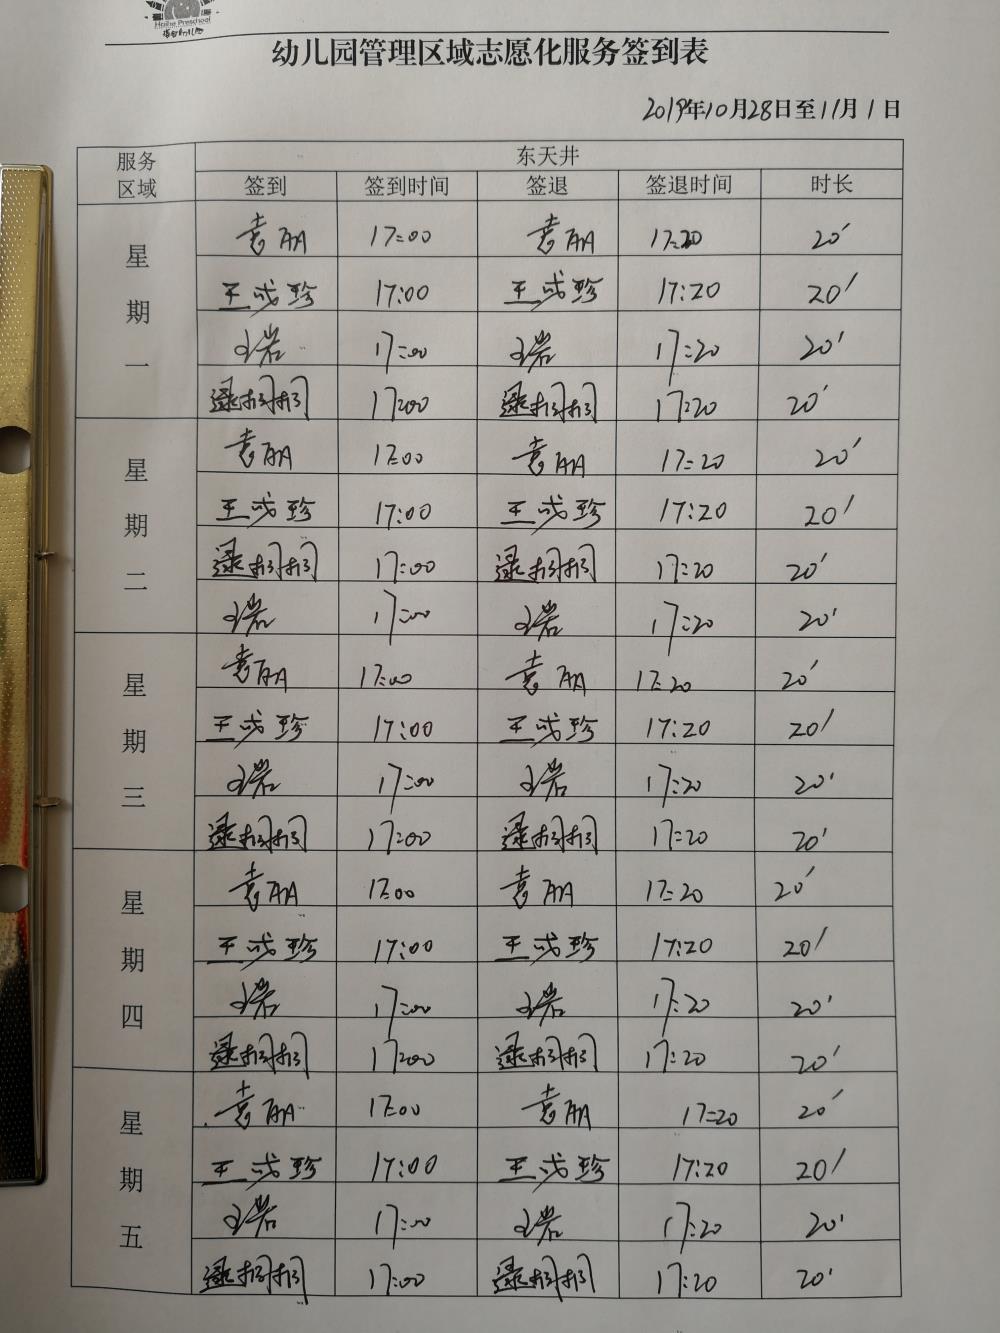 Haihe Preschool
幼儿园管理区域志愿化服务签到表
2019年10月28日至11月1日
服务区域 东天井
签到 签到时间 签退 签退时间 时长
星期一
袁丽 17:00 袁丽 17:20 20'
王成珍 17:00 王成珍 17:20 20'
王岩 17:00 王岩 17:20 20'
17:00 17:20 20'
星期二
袁丽 17:00 袁丽 17:20 20'
王成珍 17:00 王成珍 17:20 20'
17:00 17:20 20'
王岩 17:00 王岩 17:20 20'
星期三
袁丽 17:00 袁丽 17:20 20'
王成珍 17:00 王成珍 17:20 20'
王岩 17:00 王岩 17:20 20'
17:00 17:20 20'
星期四
袁丽 17:00 袁丽 17:20 20'
王成珍 17:00 王成珍 17:20 20'
王岩 17:00 王岩 17:20 20'
17:00 17:20 20'
星期五
袁丽 17:00 袁丽 17:20 20'
王成珍 17:00 王成珍 17:20 20'
王岩 17:00 王岩 17:20 20'
17:00 17:20 20'